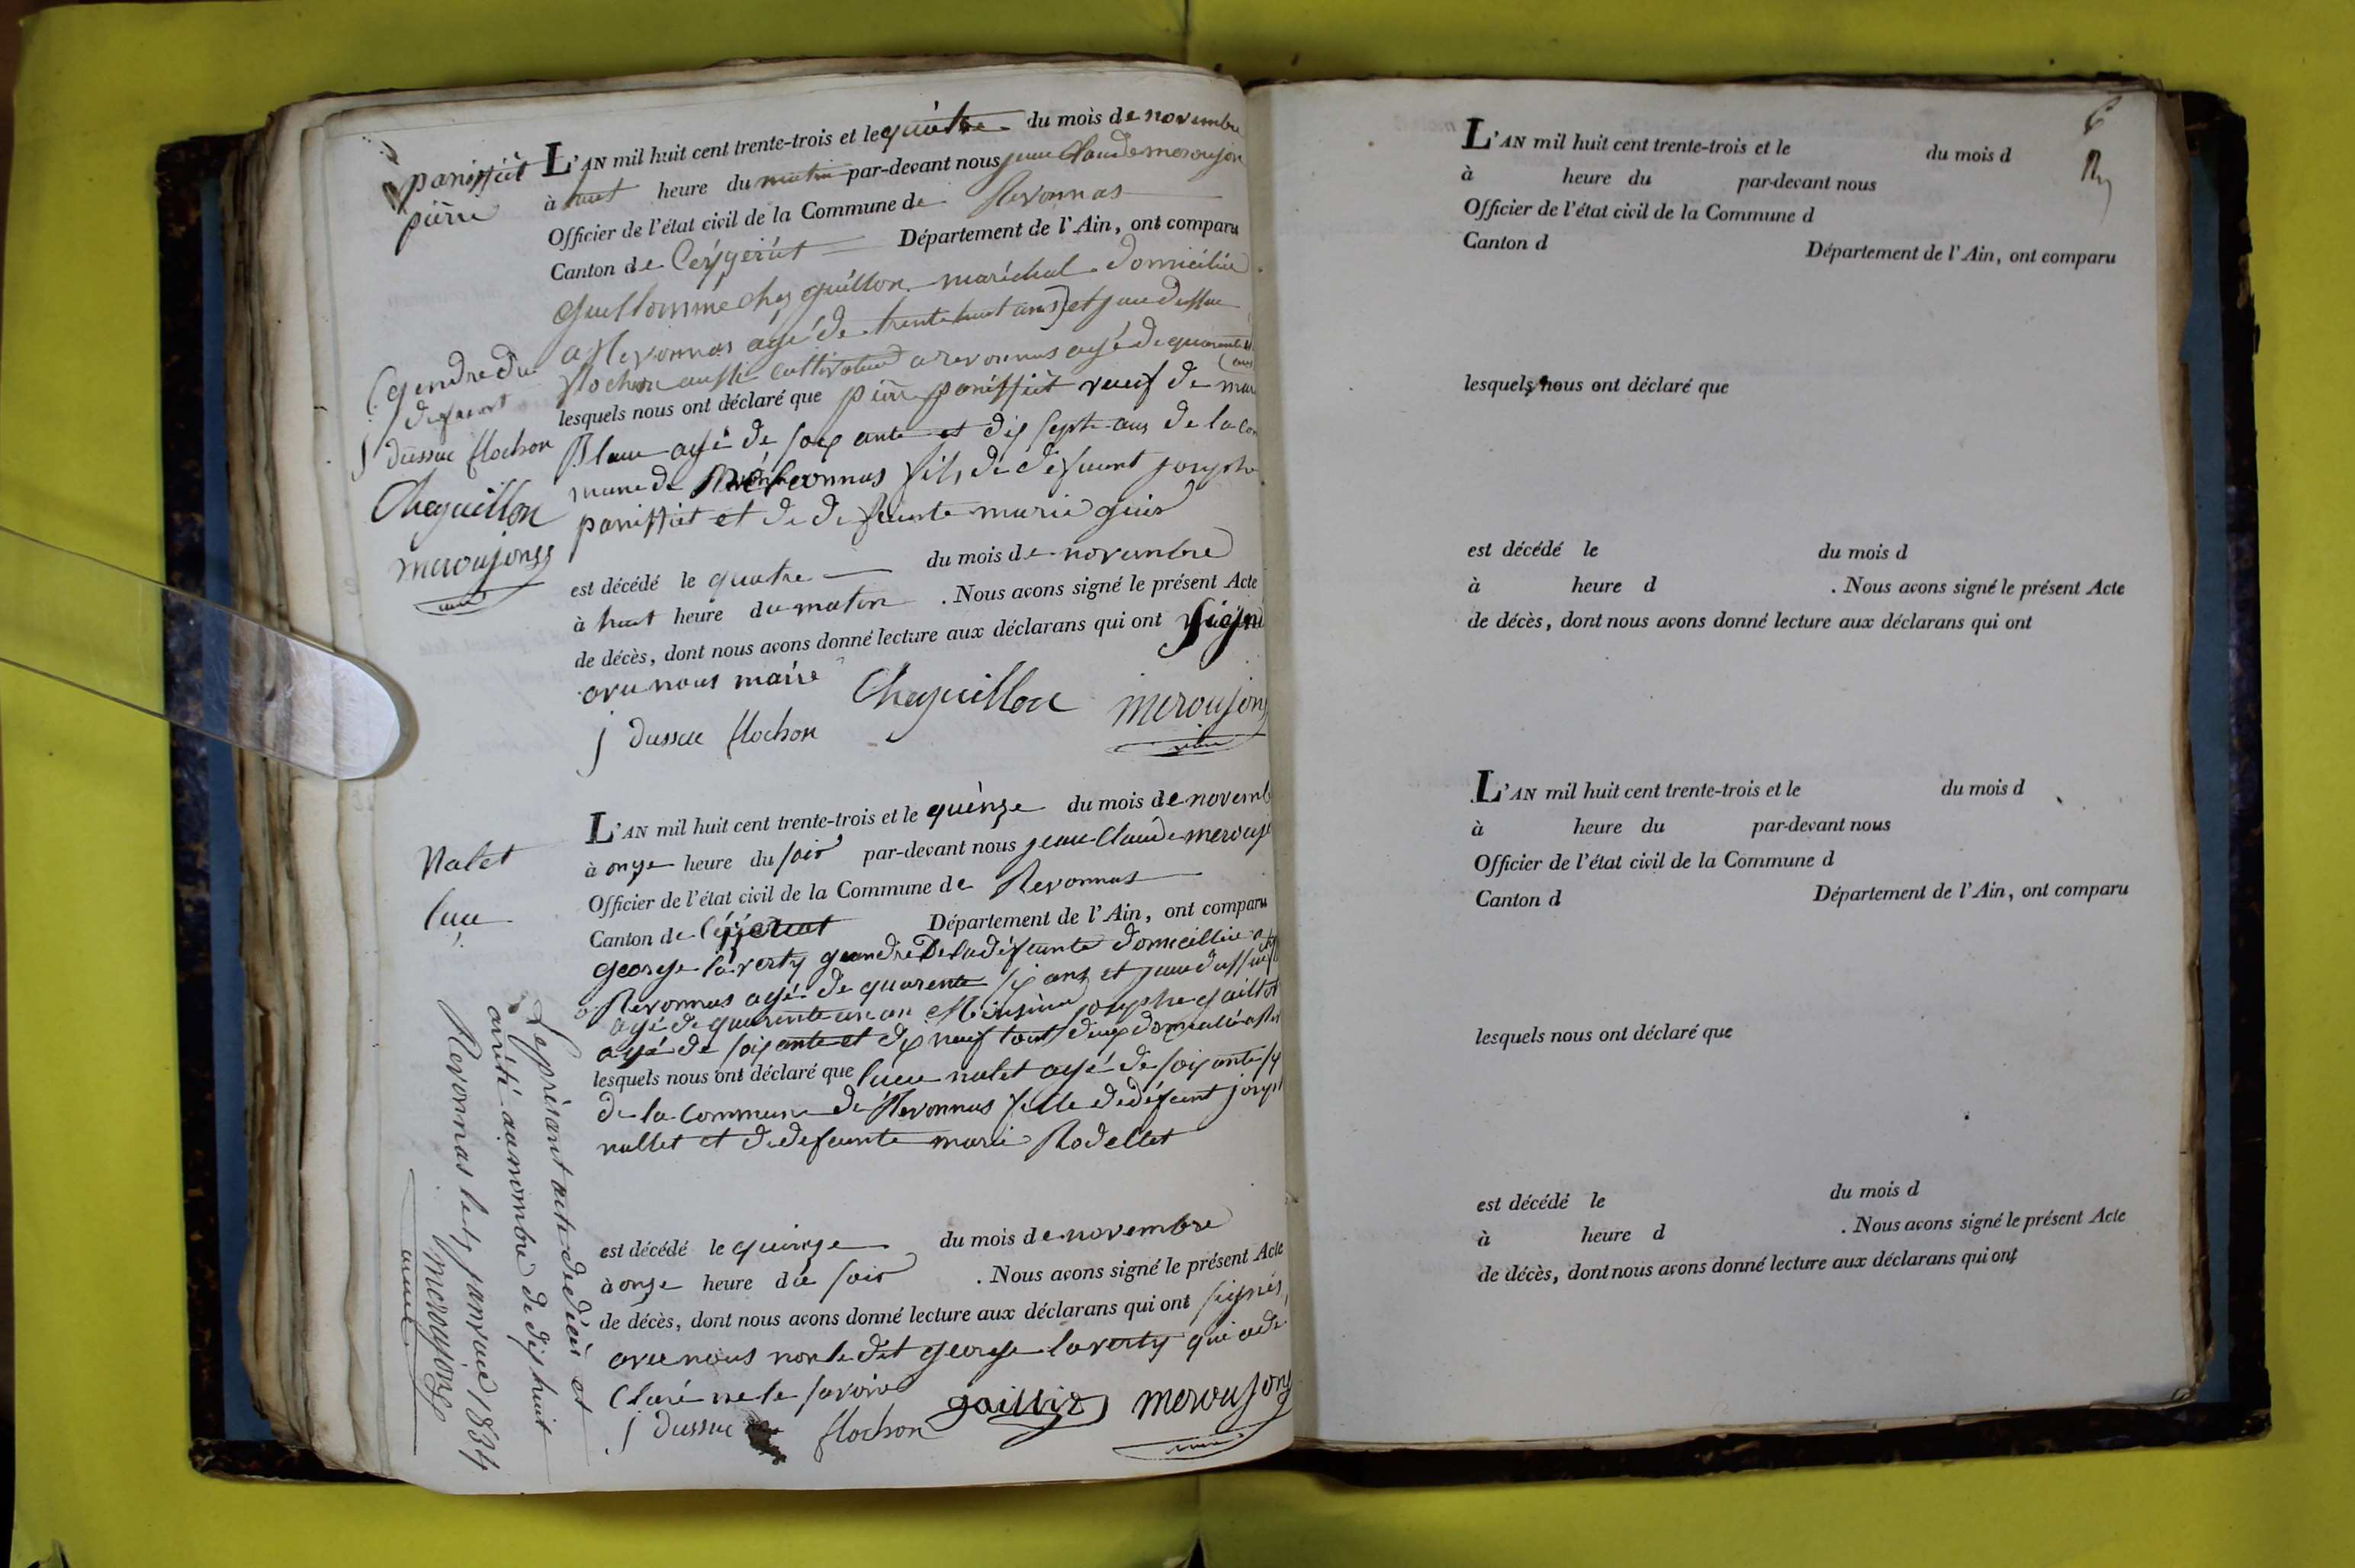 panissiét
pierre
L'AN mil huit cent trente-trois et le quàtre du mois de novembre
à huit heure du matin par-devant nous jean Claude merousjon
Officier de l'état civil de la Commune de Revonnas
Canton de Ceyzeriat Département de l'Ain, ont comparu
Guillomme cheyguillon maréchal domicilié
a Revonnas agé de trente huit ans) et jean dussuc
flochon aussi cultivateur a revonnas agé de quarante
(ans
(gendre du
defacert
j dussuc flochon
Cheyuillon
merousjong
lesquels nous ont déclaré que pierre panissiét veuf de
Blanc agé de soixante et dix sept ans de la com
mune de Revonnas fils de défunt joseph
panissiet et de defeunte marie
est décédé le quatre du mois de novembre
à huit heure du matin . Nous avons signé le présent Acte
de décès, dont nous avons donné lecture aux déclarans qui ont signé
avec nous maire
Cheyuillon merousjong
j dussuc flochon
Nalet
luce
L'AN mil huit cent trente-trois et le quènze du mois de novemb
à onze heure du soir par-devant nous jean Claude merousj
Officier de l'état civil de la Commune de Revonnas
Canton de Département de l'Ain, ont comparu
george laverty gendre de la défeunte domicillié
a Revonnas agé de quarente six ans et jean dussuc
agé de quarente un an joseph
agé de soixante et dix neuf tout deux domicillié
lesquels nous ont déclaré que luce nalet agé de soixante
de la commune de Revonnas fille de défeunt joseph
nallet et de defeunte marie Rodellet
est décédé le quinze du mois de novembre
à onze heure du soir . Nous avons signé le présent Acte
de décès, dont nous avons donné lecture aux déclarans qui ont signés
avec nous non le dit george laverty qui a dé
claré ne le savoir
gailliz merousjong
j dussuc flochon
Le présant acte de décès et
arrêté au nombre de dix huit
Revonnas le 1er janvier 1834
merousjong
6
L'AN mil huit cent trente-trois et le du mois d
à heure du par-devant nous
Officier de l'état civil de la Commune d
Canton d Département de l'Ain, ont comparu
lesquels nous ont déclaré que
est décédé le du mois d
à heure d . Nous avons signé le présent Acte
de décès, dont nous avons donné lecture aux déclarans qui ont
L'AN mil huit cent trente-trois et le du mois d
à heure du par-devant nous
Officier de l'état civil de la Commune d
Canton d Département de l'Ain, ont comparu
lesquels nous ont déclaré que
est décédé le du mois d
à heure d . Nous avons signé le présent Acte
de décès, dont nous avons donné lecture aux déclarans qui ont